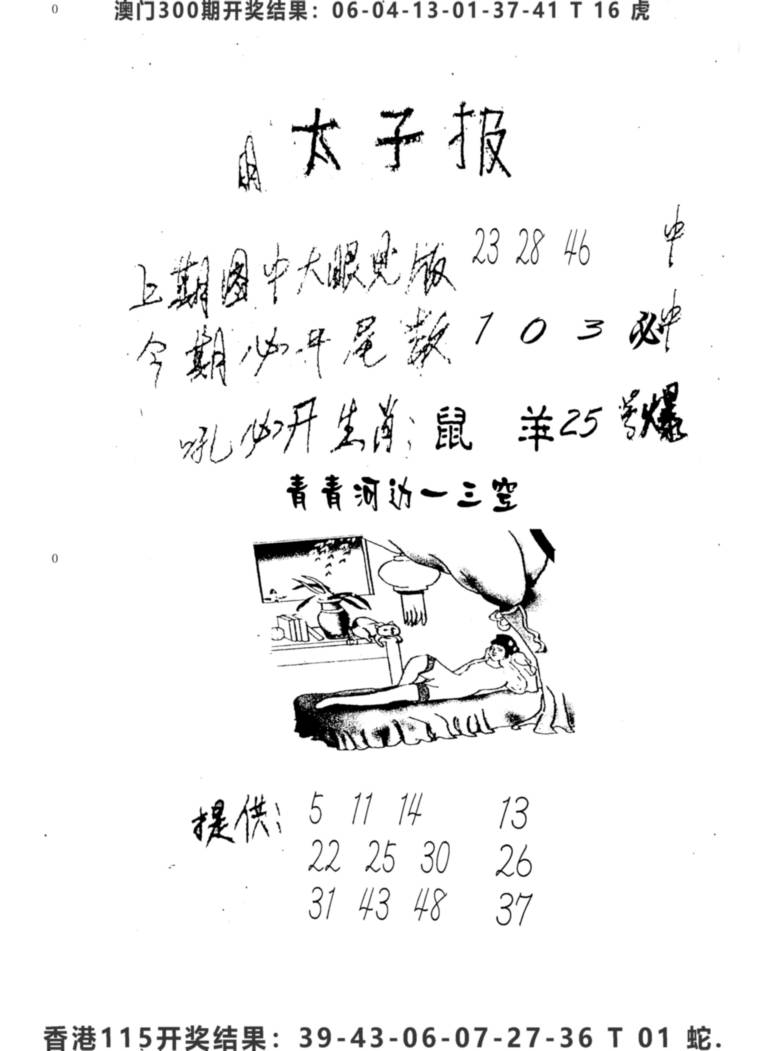 0
澳门300期开奖结果：06-04-13-01-37-41 T 16 虎
太子报
上期图中大眼见版 23 28 46 中
今期必开尾数 1 0 3 必中
吼必开生肖：鼠 羊25号爆
青青河边一三空
0
提供： 5 11 14 13
22 25 30 26
31 43 48 37
香港115开奖结果：39-43-06-07-27-36 T 01 蛇.